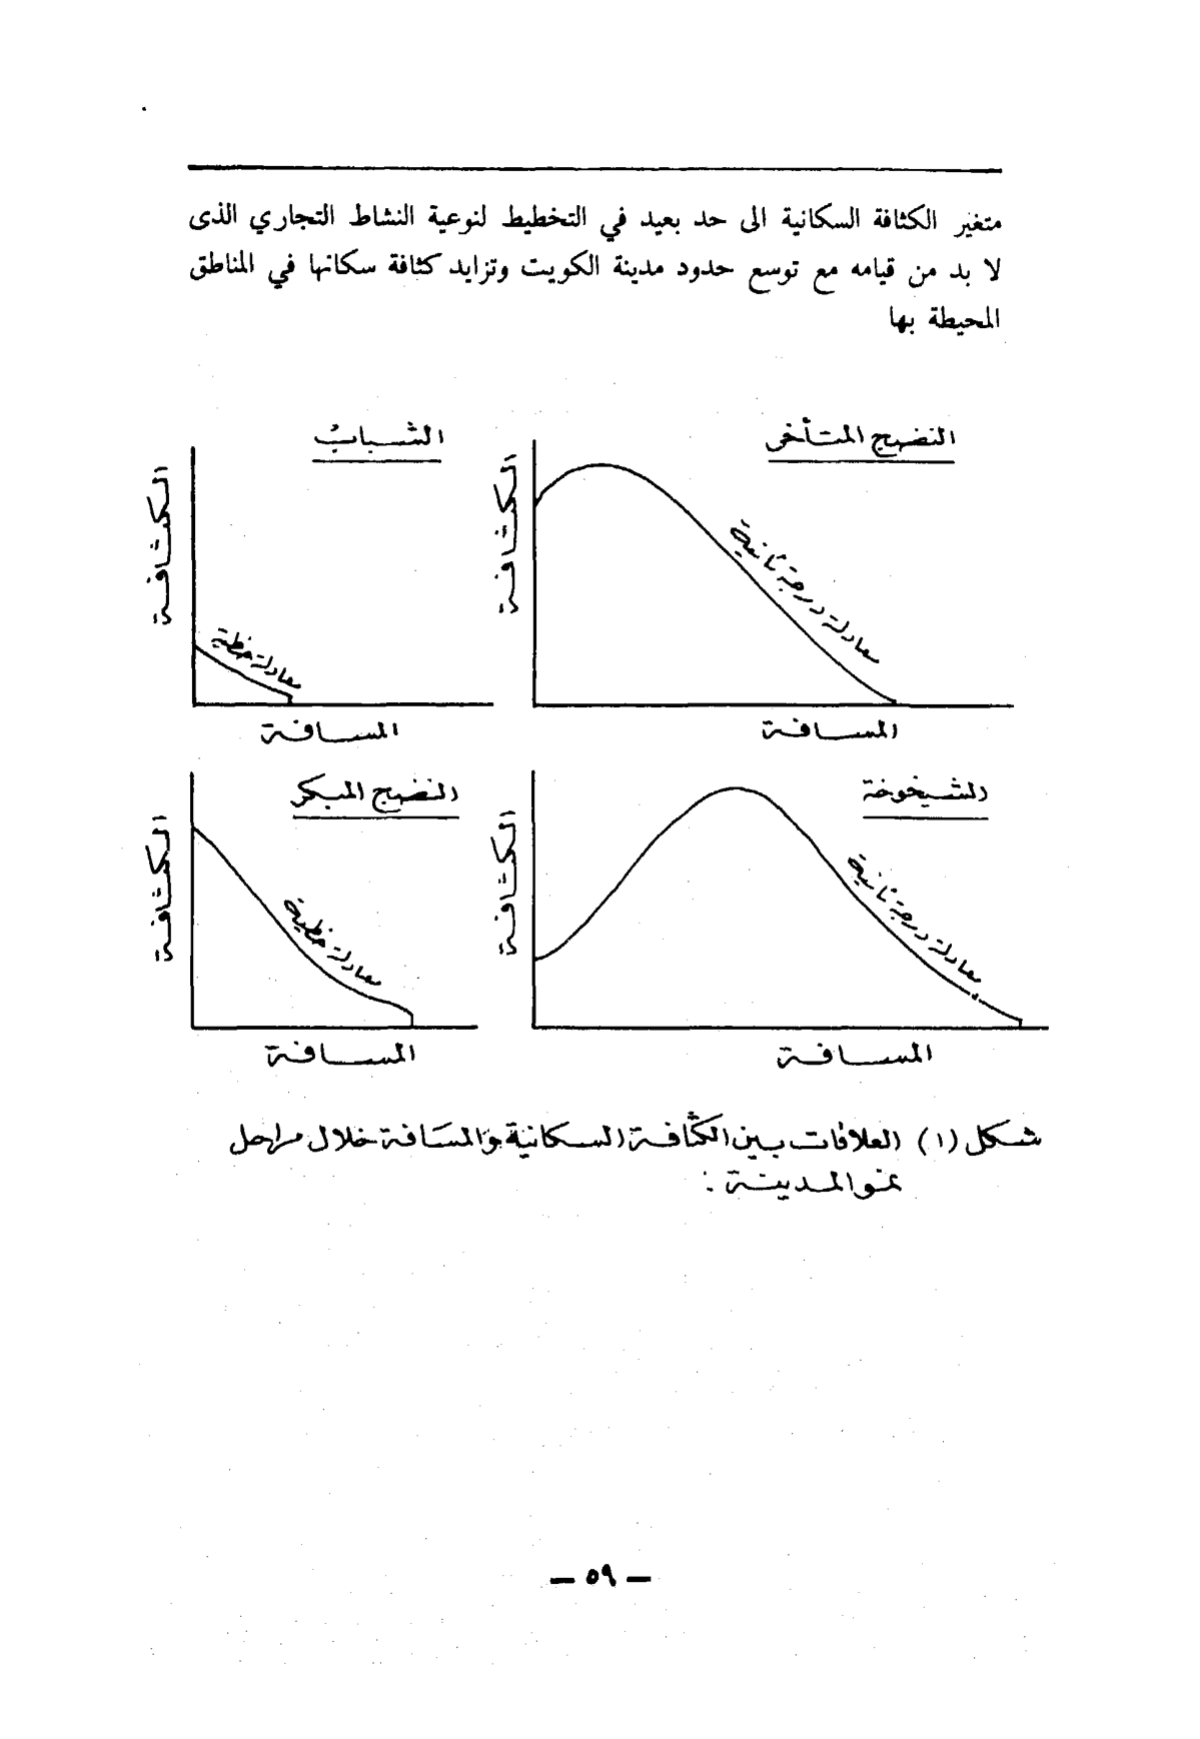 متغير الكثافة السكانية الى حد بعيد في التخطيط لنوعية النشاط التجاري الذى
لا بد من قيامه مع توسع حدود مدينة الكويت وتزايد كثافة سكانها في المناطق
المحيطة بها
النضج المتأخر
الكثافة
معادلة درجة ثانية
المسافة
الشباب
الكثافة
معادلة خطية
المسافة
الشيخوخة
الكثافة
معادلة درجة ثانية
المسافة
النضج المبكر
الكثافة
معادلة خطية
المسافة
شكل (١) العلاقات بين الكثافة السكانية والمسافة خلال مراحل
نمو المدينة :
— ٥٩ —